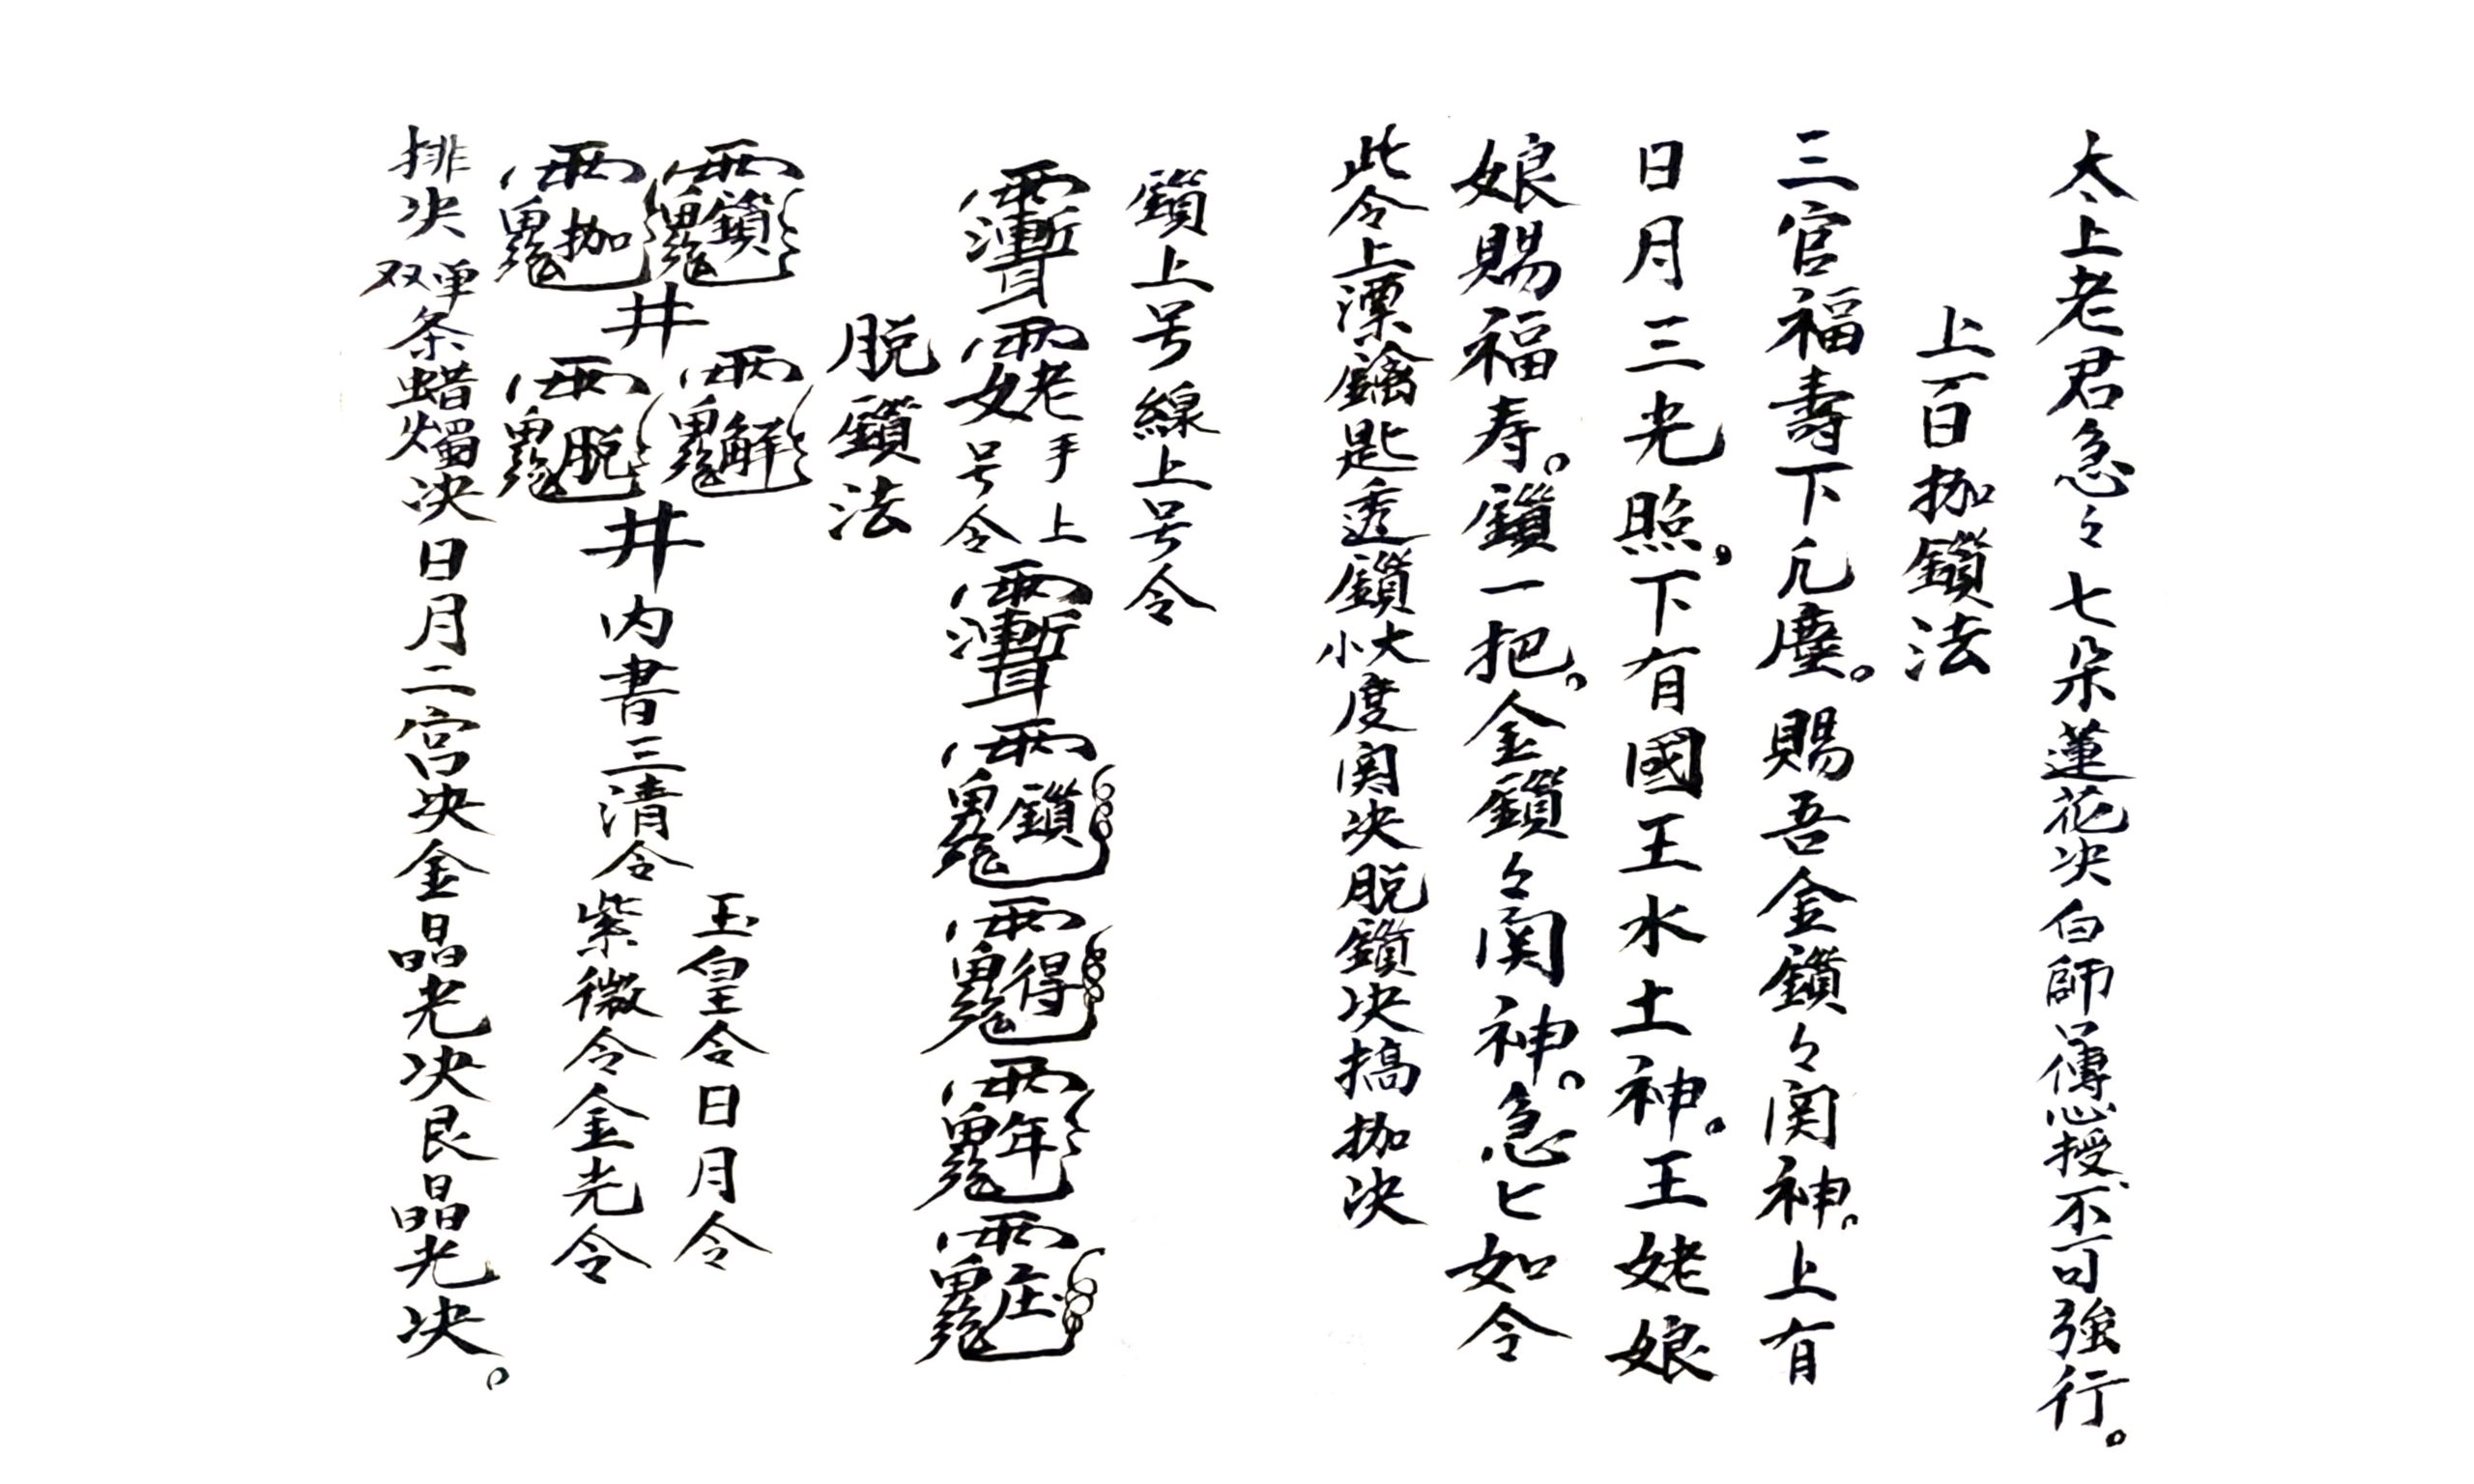 太上老君急々七朶蓮花决白師口傳心授不可強行。
上百枷鎖法
三官福壽下凢塵。賜吾金鎖々関神。上有
日月三光照。下有國王水土神。王姥娘
娘賜福寿。鎖一把。金鎖々関神。急匕如令
此令上漂鑰匙透鎖大小度関决脱鎖决搞枷决
鎖上号線上号令
手上号令
脱鎖法
井井内書三清令玉皇令日月令
紫微令金光令
排决双单条蜡燭决日月二宫决金晶光决艮晶光决。